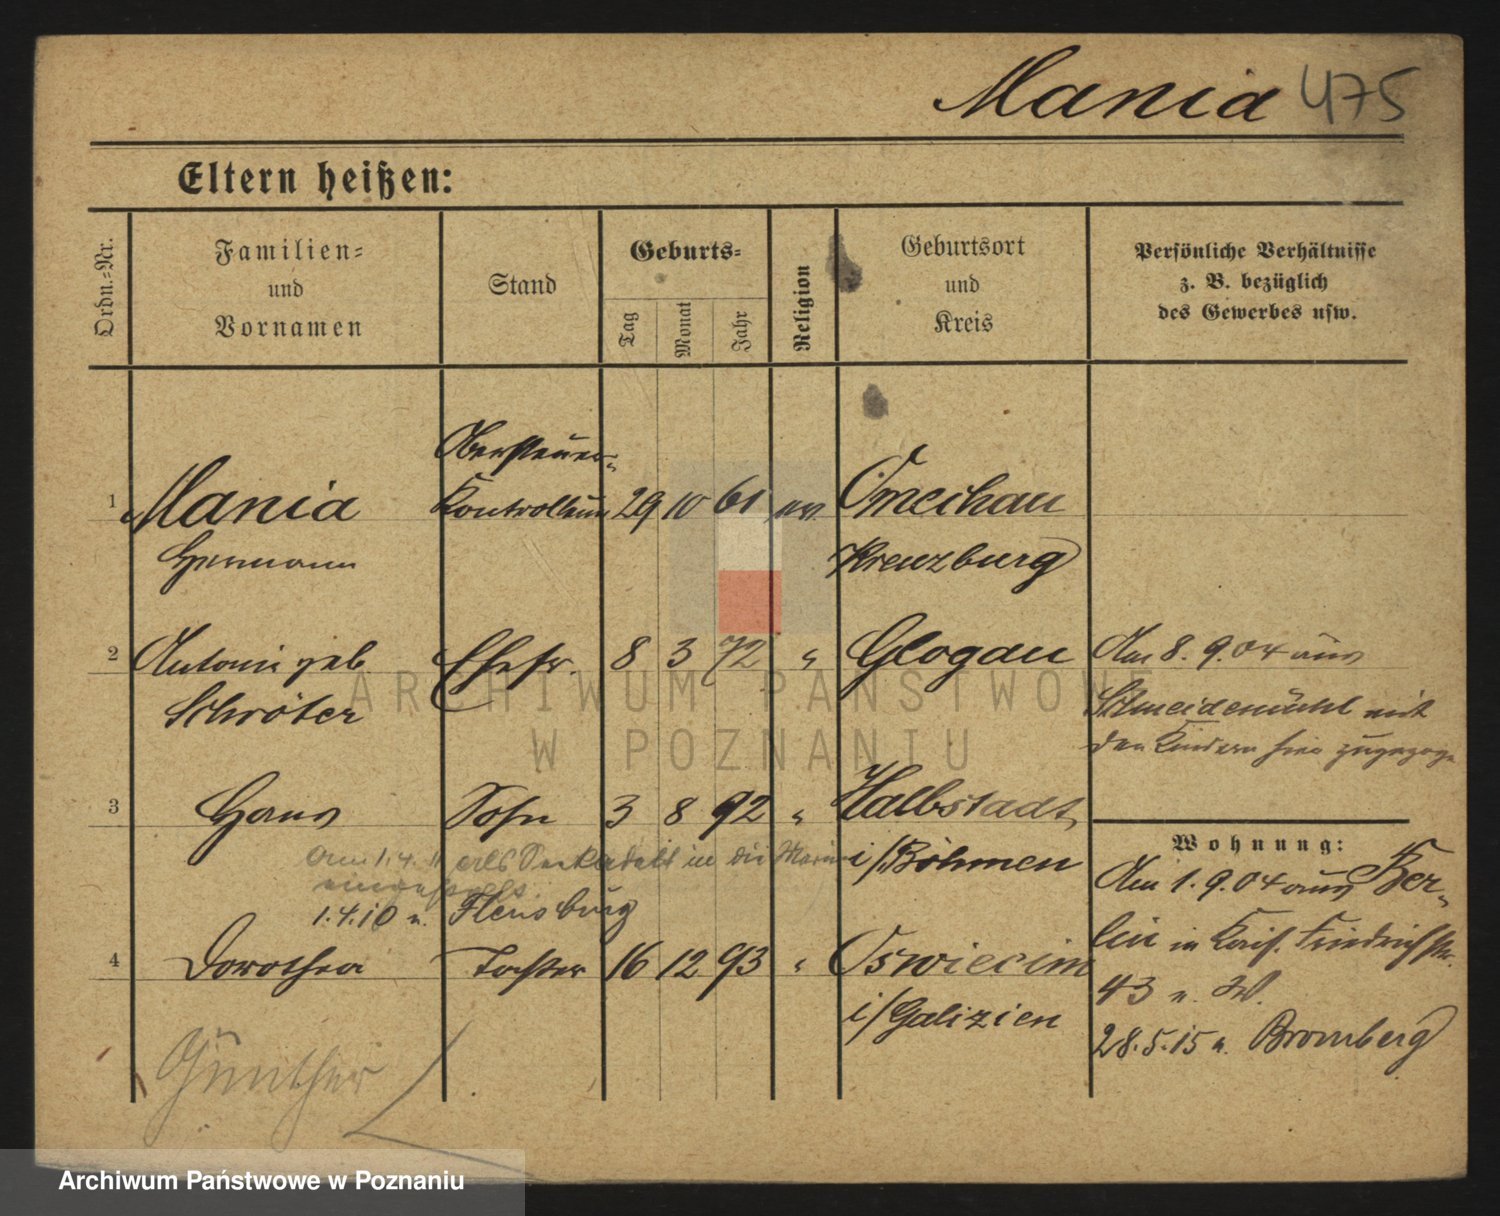 Mania 475
Eltern heißen:
Ordn.-Nr.
Familien-
und
Vornamen
Stand
Geburts-
Tag
Monat
Jahr
Religion
Geburtsort
und
Kreis
Persönliche Verhältnisse
z. B. bezüglich
des Gewerbes usw.
Obersteuer-
1 Mania Kontrolleur 29 10 61 ev. Omechau
Hermann Kreuzburg
2 Antonie geb. Ehefr. 8 3 72 " Glogau Am 8. 9. 04 aus
Schröter Schneidemühl mit
den Kindern hier zugezogen
3 Hans Sohn 3 8 92 " Halbstadt
Wohnung:
Am 1. 4. 11 als Seekadett in die Marine i/Böhmen
eingestellt. Am 1. 9. 04 aus Ber-
1. 4. 10 n. Flensburg
lin in Kais. Friedrichstr.
4 Dorothea Tochter 16 12 93 " Oswiecim
43 n. W.
i/Galizien
28. 5. 15 n. Bromberg
Günther
ARCHIWUM PAŃSTWOWE
W POZNANIU
Archiwum Państwowe w Poznaniu